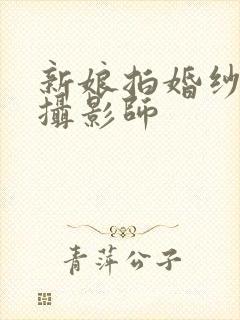 新娘拍婚纱
攝影師
青萍公子